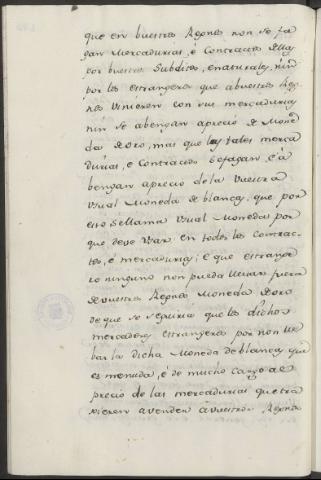 que en buestros Regnos non se fa
gan mercadurias, e Contractos dellas
por buestros Subditos, e naturales, nin
por los estrangeros que a buestros Reg
nos vinieren con sus mercadurias
nin se abengan aprecio de Mone
da de oro, mas que las tales merca
durias, e Contractos se fagan, e a
bengan aprecio de la Vuestra
Usual Moneda de blancas; que por
eso se llama Usual Moneda por
que deve Usar en todos los Contrac
tos, e mercadurias; e que estrange
ro ninguno non pueda llevar fuera
de vuestros Regnos Moneda de oro
de que se seguiria que los dichos
mercaderes estrangeros por non lle
bar la dicha Moneda de blancas que
es menuda, e de mucho cargo al
precio de las mercadurias que tra
xieren avender a vuestros Regnos